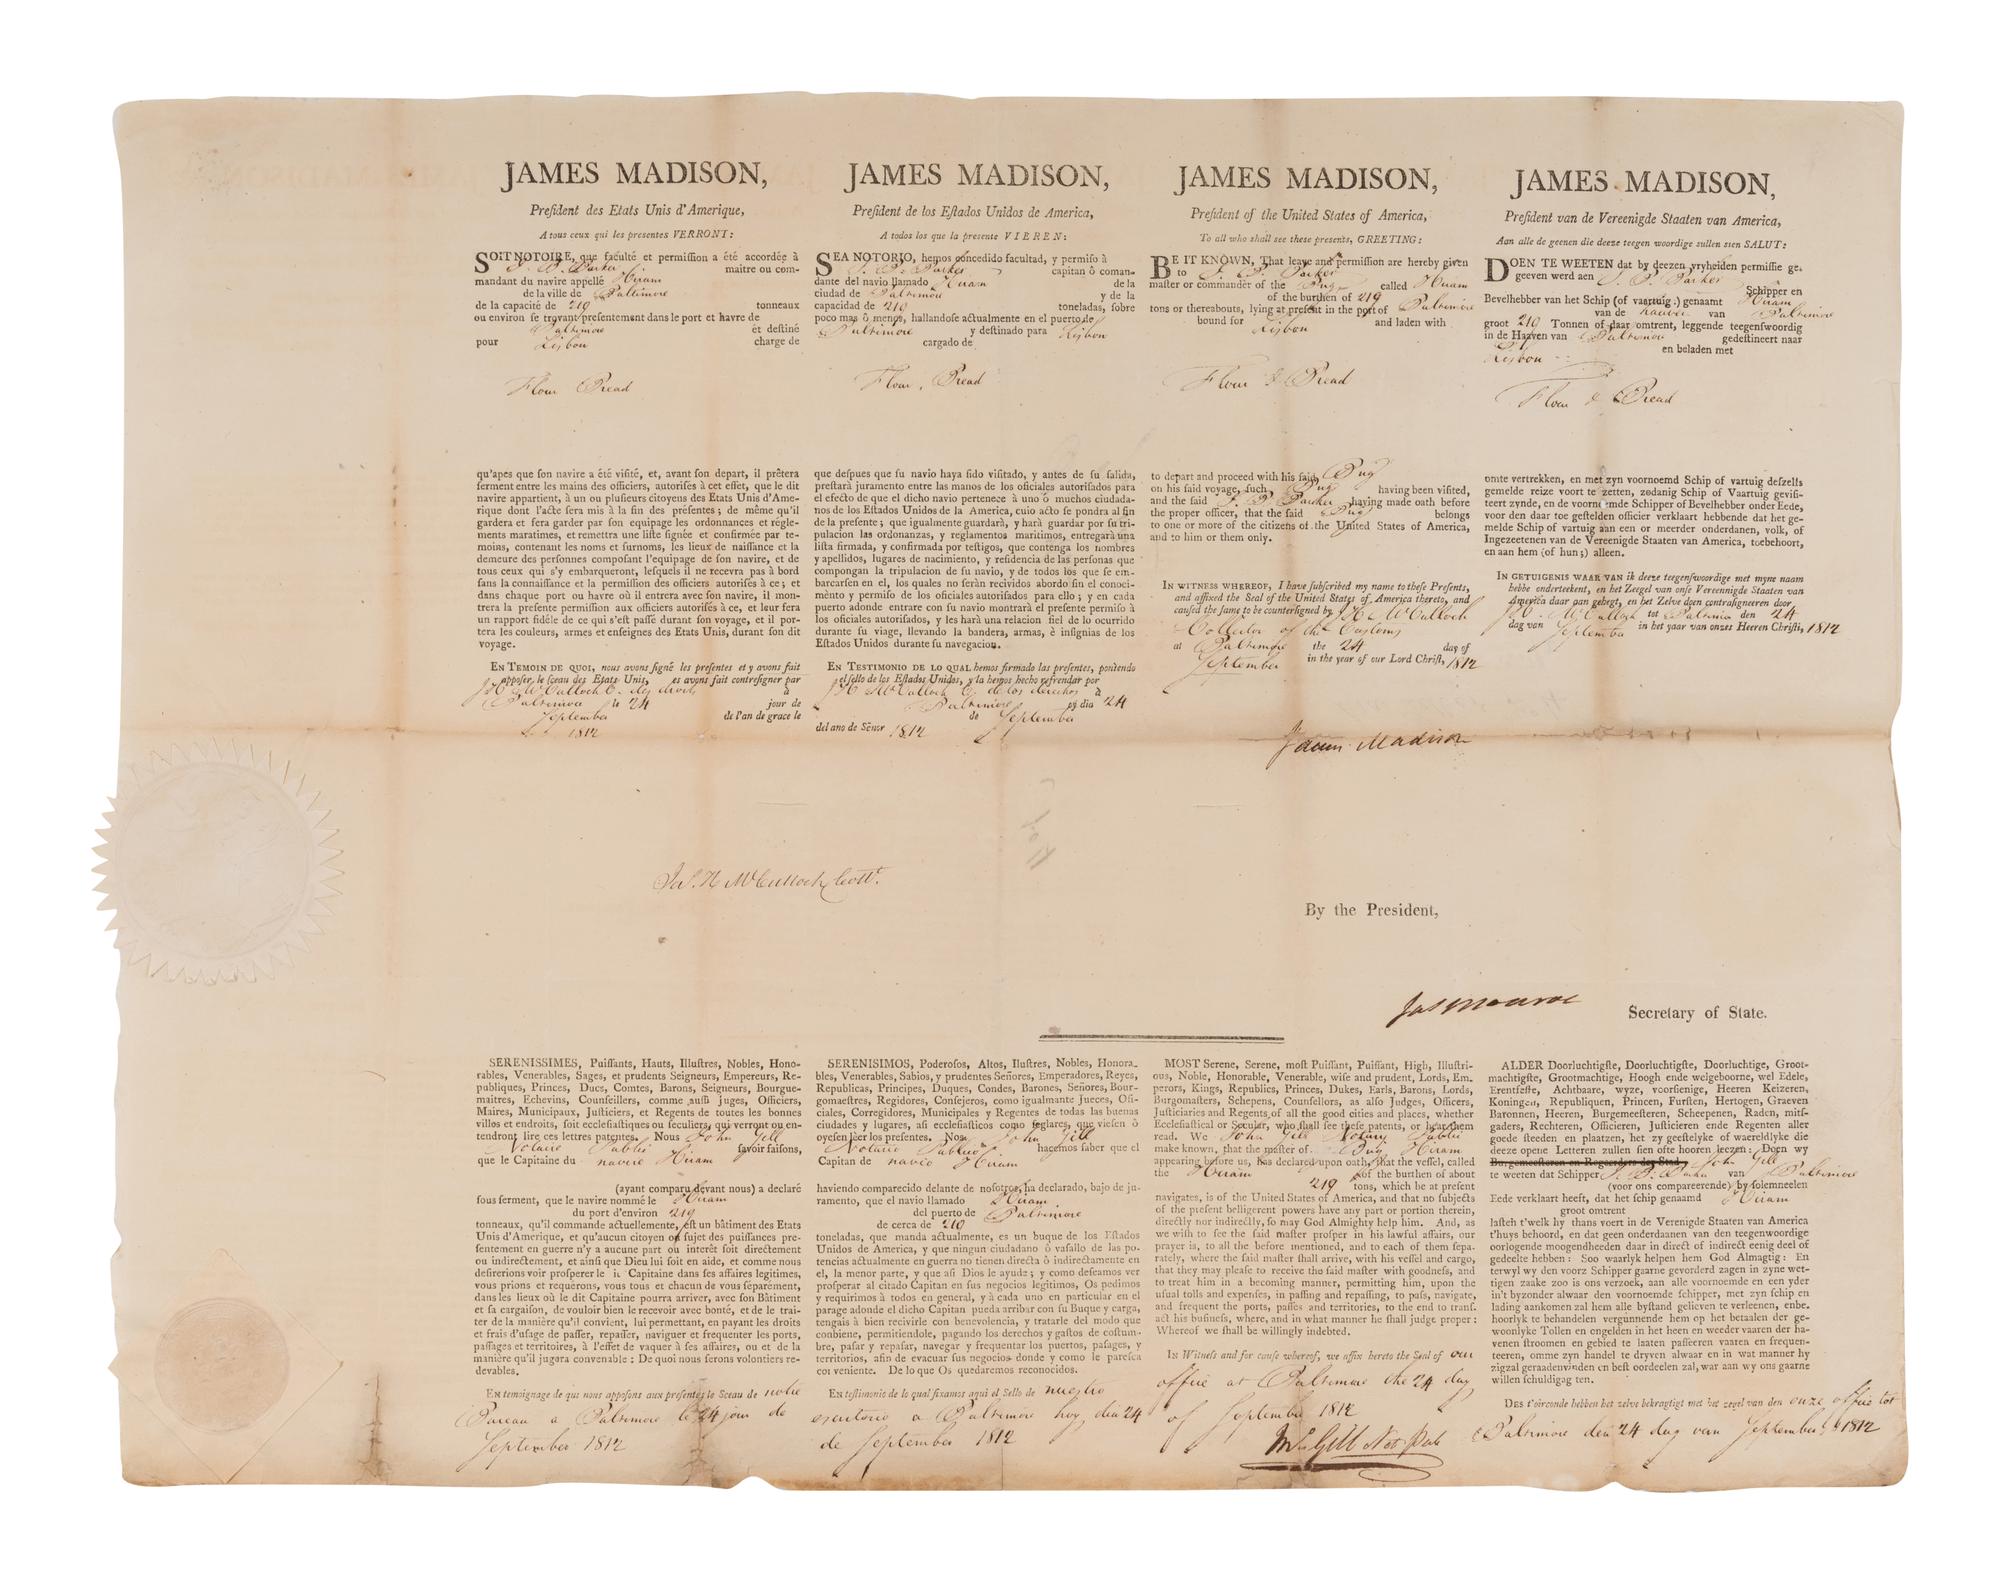 JAMES MADISON,
Preſident des Etats Unis d'Amerique,
A tous ceux qui les preſentes VERRONT:
SOIT NOTOIRE, que faculté et permiſſion a été accordée à
J. P. Parker maitre ou com-
mandant du navire appellé Hiram
de la ville de Baltimore
de la capacité de 219 tonneaux
ou environ ſe trouvant preſentement dans le port et havre de
Baltimore et deſtiné
pour Lisbon charge de
Flour Bread
qu'apes que ſon navire a été viſité, et, avant ſon depart, il prêtera
ſerment entre les mains des officiers, autoriſés à cet effet, que le dit
navire appartient, à un ou pluſieurs citoyens des Etats Unis d'Ame-
rique dont l'acte ſera mis à la fin des préſentes; de même qu'il
gardera et ſera garder par ſon equipage les ordonnances et régle-
ments maratimes, et remettra une liſte ſignée et confirmée par te-
moins, contenant les noms et ſurnoms, les lieux de naiſſance et la
demeure des perſonnes compoſant l'equipage de ſon navire, et de
tous ceux qui s'y embarqueront, leſquels il ne recevra pas à bord
ſans la connaiſſance et la permiſſion des officiers autoriſés à ce; et
dans chaque port ou havre où il entrera avec ſon navire, il mon-
trera la preſente permiſſion aux officiers autoriſés à ce, et leur fera
un rapport fidéle de ce qui s'eſt paſſé durant ſon voyage, et il por-
tera les couleurs, armes et enſeignes des Etats Unis, durant ſon dit
voyage.
EN TEMOIN DE QUOI, nous avons ſigné les preſentes et y avons fait
appoſer le ſceau des Etats Unis, es avons fait contreſigner par
J H McCulloch C. des droits à
Baltimore le 24 jour de
September de l'an de grace le
1812
JAMES MADISON,
Preſident de los Eſtados Unidos de America,
A todos los que la preſente VIEREN:
SEA NOTORIO, hemos concedido facultad, y permiſo à
J. P. Parker capitan ô coman-
dante del navio llamado Hiram de la
ciudad de Baltimore y de la
capacidad de 219 toneladas, ſobre
poco mas ô menos, hallandoſe actualmente en el puerto de
Baltimore y deſtinado para Lisbon
cargado de
Flour, Bread
que deſpues que ſu navio haya ſido viſitado, y antes de ſu ſalida,
preſtarà juramento entre las manos de los oficiales autoriſados para
el efecto de que el dicho navio pertenece à uno ô muchos ciudada-
nos de los Eſtados Unidos de la America, cuio acto ſe pondra al fin
de la preſente; que igualmente guardarà, y harà guardar por ſu tri-
pulacion las ordonanzas, y reglamentos maritimos, entregarà una
liſta firmada, y confirmada por teſtigos, que contenga los nombres
y apellidos, lugares de nacimiento, y reſidencia de las perſonas que
compongan la tripulacion de ſu navio, y de todos los que ſe em-
barcarſen en el, los quales no ſeràn recividos abordo ſin el conoci-
mento y permiſo de los oficiales autoriſados para ello; y en cada
puerto adonde entrare con ſu navio montrarà el preſente permiſo à
los oficiales autoriſados, y les harà una relacion fiel de lo ocurrido
durante ſu viage, llevando la bandera, armas, è inſignias de los
Eſtados Unidos durante ſu navegacion.
EN TESTIMONIO DE LO QUAL hemos firmado las preſentes, poniendo
el ſello de los Eſtados Unidos, y la hemos hecho refrendar por
J H McCulloch C. de los derechos à
Baltimore y dia 24
de September
del ano de Señor 1812
JAMES MADISON,
Preſident of the United States of America,
To all who ſhall ſee theſe preſents, GREETING:
BE IT KNOWN, That leave and permiſſion are hereby given
to J. P. Parker
maſter or commander of the Brig called Hiram
of the burthen of 219
tons or thereabouts, lying at preſent in the port of Baltimore
bound for Lisbon and laden with
Flour & Bread
to depart and proceed with his ſaid Brig
on his ſaid voyage, ſuch Brig having been viſited,
and the ſaid J. P. Parker having made oath before
the proper officer, that the ſaid Brig belongs
to one or more of the citizens of the United States of America,
and to him or them only.
IN WITNESS WHEREOF, I have ſubſcribed my name to theſe Preſents,
and affixed the Seal of the United States of America thereto, and
cauſed the ſame to be counterſigned by J H McCulloch
Collector of the Customs
at Baltimore the 24 day of
September in the year of our Lord Chriſt, 1812
James Madison
JAMES MADISON,
Preſident van de Vereenigde Staaten van America,
Aan alle de geenen die deeze teegen woordige sullen sien SALUT:
DOEN TE WEETEN dat by deezen vryheiden permiſſie ge.
geeven werd aen J. P. Parker Schipper en
Bevelhebber van het Schip (of vaartuig:) genaamt Hiram
van de haven van Baltimore
groot 219 Tonnen of daar omtrent, leggende teegenſwoordig
in de Haaven van Baltimore gedeſtineert naar
Lisbon en beladen met
Flour & Bread
omte vertrekken, en met zyn voornoemd Schip of vartuig deſzelfs
gemelde reize voort te zetten, zodanig Schip of Vaartuig geviſi-
teert zynde, en de voornoemde Schipper of Bevelhebber onder Eede,
voor den daar toe geſtelden officier verklaart hebbende dat het ge-
melde Schip of vartuig aan een or meerder onderdanen, volk, of
Ingezeetenen van de Vereenigde Staaten van America, toebehoort,
en aan hem (of hun;) alleen.
IN GETUIGENIS WAAR VAN ik deeze teegenſwoordige met myne naam
hebbe onderteekent, en het Zeegel van onſe Vereenigde Staaten van
America daar aan gehegt, en het Zelve doen contraſigneeren door
J H McCulloch tot Baltimore den 24
dag van September in het yaar van onzes Heeren Chriſti, 1812
Jas. H McCulloch Collr.
By the President,
Jas Monroe Secretary of State.
SERENISSIMES, Puiſſants, Hauts, Illuſtres, Nobles, Hono-
rables, Venerables, Sages, et prudents Seigneurs, Empereurs, Re-
publiques, Princes, Ducs, Comtes, Barons, Seigneurs, Bourgue-
maitres, Echevins, Counſeillers, comme auſſi juges, Officiers,
Maires, Municipaux, Juſticiers, et Regents de toutes les bonnes
villes et endroits, ſoit eccleſiaſtiques ou ſeculiers, qui verront ou en-
tendront lire ces lettres patentes. Nous John Gill
Notaire Public ſavoir faiſons,
que le Capitaine du navire Hiram
(ayant comparu devant nous) a declaré
ſous ſerment, que le navire nommé le Hiram
du port d'environ 219
tonneaux, qu'il commande actuellement, eſt un bâtiment des Etats
Unis d'Amerique, et qu'aucun citoyen ou ſujet des puiſſances pre-
ſentement en guerre n'y a aucune part ou interêt ſoit directement
ou indirectement, et ainſi que Dieu lui ſoit en aide, et comme nous
deſirerions voir proſperer le it Capitaine dans ſes affaires legitimes,
vous prions et requérons, vous tous et chacun de vous ſéparément,
dans les lieux où le dit Capitaine pourra arriver, avec ſon Bâtiment
et ſa cargaiſon, de vouloir bien le recevoir avec bonté, et de le trai-
ter de la manière qu'il convient, lui permettant, en payant les droits
et frais d'uſage de paſſer, repaſſer, naviguer et frequenter les ports,
paſſages et territoires, à l'effet de vaquer à ſes affaires, ou et de la
manière qu'il jugora convenable: De quoi nous ſerons volontiers re-
devables.
EN temoignage de qui nous appoſons aux preſentes le Sceau de notre
Bureau a Baltimore le 24 jour de
September 1812
SERENISIMOS, Poderoſos, Altos, Iluſtres, Nobles, Honora-
bles, Venerables, Sabios, y prudentes Señores, Emperadores, Reyes,
Republicas, Principes, Duques, Condes, Barones, Señores, Bour-
gomaeſtres, Regidores, Conſejeros, como igualmante Jueces, Ofi-
ciales, Corregidores, Municipales y Regentes de todas las buenas
ciudades y lugares, aſi eccleſiaſticos como ſeglares, que vieſen ò
oyeſen leer los preſentes. Nos John Gill
Notario Publico hacemos ſaber que el
Capitan de navio Hiram
haviendo comparecido delante de noſotros, ha declarado, bajo de ju-
ramento, que el navio llamado Hiram
del puerto de Baltimore
de cerca de 219
toneladas, que manda actualmente, es un buque de los Eſtados
Unidos de America, y que ningun ciudadano ô vaſallo de las po-
tencias actualmente en guerra no tienen directa ò indirectamente en
el, la menor parte, y que aſi Dios le ayude; y como deſeamos ver
proſperar al citado Capitan en ſus negocios legitimos, Os pedimos
y requirimos à todos en general, y à cada uno en particular en el
parage adonde el dicho Capitan pueda arribar con ſu Buque y carga,
tengais à bien recivirle con benevolencia, y tratarle del modo que
conbiene, permitiendole, pagando los derechos y gaſtos de coſtum-
bre, paſar y repaſar, navegar y frequentar los puertos, paſages, y
territorios, afin de evacuar ſus negocios donde y como le pareſca
conveniente. De lo que Os quedaremos reconocidos.
EN teſtimonio de lo qual fixamos aqui el Sello de nuestro
escritorio a Baltimore hoy dia 24
de September 1812
MOST Serene, Serene, moſt Puiſſant, Puiſſant, High, Illuſtri-
ous, Noble, Honorable, Venerable, wiſe and prudent, Lords, Em-
perors, Kings, Republics, Princes, Dukes, Earls, Barons, Lords,
Burgomaſters, Schepens, Counſellors, as alſo Judges, Officers,
Juſticiaries and Regents of all the good cities and places, whether
Eccleſiaſtical or Secular, who ſhall ſee theſe patents, or hear them
read. We John Gill Notary Public
make known, that the maſter of Brig Hiram
appearing before us, has declared upon oath, that the veſſel, called
the Hiram of the burthen of about
219 tons, which he at preſent
navigates, is of the United States of America, and that no ſubjects
of the preſent belligerent powers have any part or portion therein,
directly nor indirectly, ſo may God Almighty help him. And, as
we wiſh to ſee the ſaid maſter proſper in his lawful affairs, our
prayer is, to all the before mentioned, and to each of them ſepa-
rately, where the ſaid maſter ſhall arrive, with his veſſel and cargo,
that they may pleaſe to receive the ſaid maſter with goodneſs, and
to treat him in a becoming manner, permitting him, upon the
uſual tolls and expenſes, in paſſing and repaſſing, to paſs, navigate,
and frequent the ports, paſſes and territories, to the end to tranſ-
act his buſineſs, where, and in what manner he ſhall judge proper:
Whereof we ſhall be willingly indebted.
IN Witneſs and for cauſe whereof, we affix hereto the Seal of our
office at Baltimore the 24 day
of September 1812
Jno Gill Not Pub
ALDER Doorluchtigſte, Doorluchtigſte, Doorluchtige, Groot-
machtigſte, Grootmachtige, Hoogh ende welgeboorne, wel Edele,
Erentfeſte, Achtbaare, wyze, voorſienige, Heeren Keizeren,
Koningen, Republiquen, Princen, Furſten, Hertogen, Graeven
Baronnen, Heeren, Burgemeeſteren, Scheepenen, Raden, mitſ-
gaders, Rechteren, Officieren, Juſticieren ende Regenten aller
goede ſteeden en plaatzen, het zy geeſtelyke of waereldlyke die
deeze opene Letteren zullen ſien ofte hooren leezen: Doen wy
Burgemeeſteren en Regeerders der Stad John Gill
te weeten dat Schipper J. P. Parker van Baltimore
(voor ons compareerende) by ſolemneelen
Eede verklaart heeft, dat het ſchip genaamd Hiram
groot omtrent
laſteh t'welk hy thans voert in de Verenigde Staaten van America
t'huys behoord, en dat geen onderdaanen van den teegenwoordige
oorlogende moogendheeden daar in direct of indirect eenig deel of
gedeelte hebben: Soo waarlyk helpen hem God Almagtig: En
terwyl wy den voorz Schipper gaarne gevorderd zagen in zyne wet-
tigen zaake zoo is ons verzoek, aan alle voornoemde en een yder
in't byzonder alwaar den voornoemde ſchipper, met zyn ſchip en
lading aankomen zal hem alle byſtand gelieven te verleenen, enbe.
hoorlyk te behandelen vergünnende hem op het betaalen der ge-
woonlyke Tollen en ongelden in het heen en weeder vaaren der ha-
venen ſtroomen en gebied te laaten paſſeeren vaaren en frequen-
teeren, omme zyn handel te dryven alwaar en in wat manner hy
zigzal geraadenvinden en beſt oordeelen zal, war aan wy ons gaarne
willen ſchuldigag ten.
DES t'oirconde hebben het zelve bekragtigt met het zegel van den onze office tot
Baltimore den 24 dag van September 1812